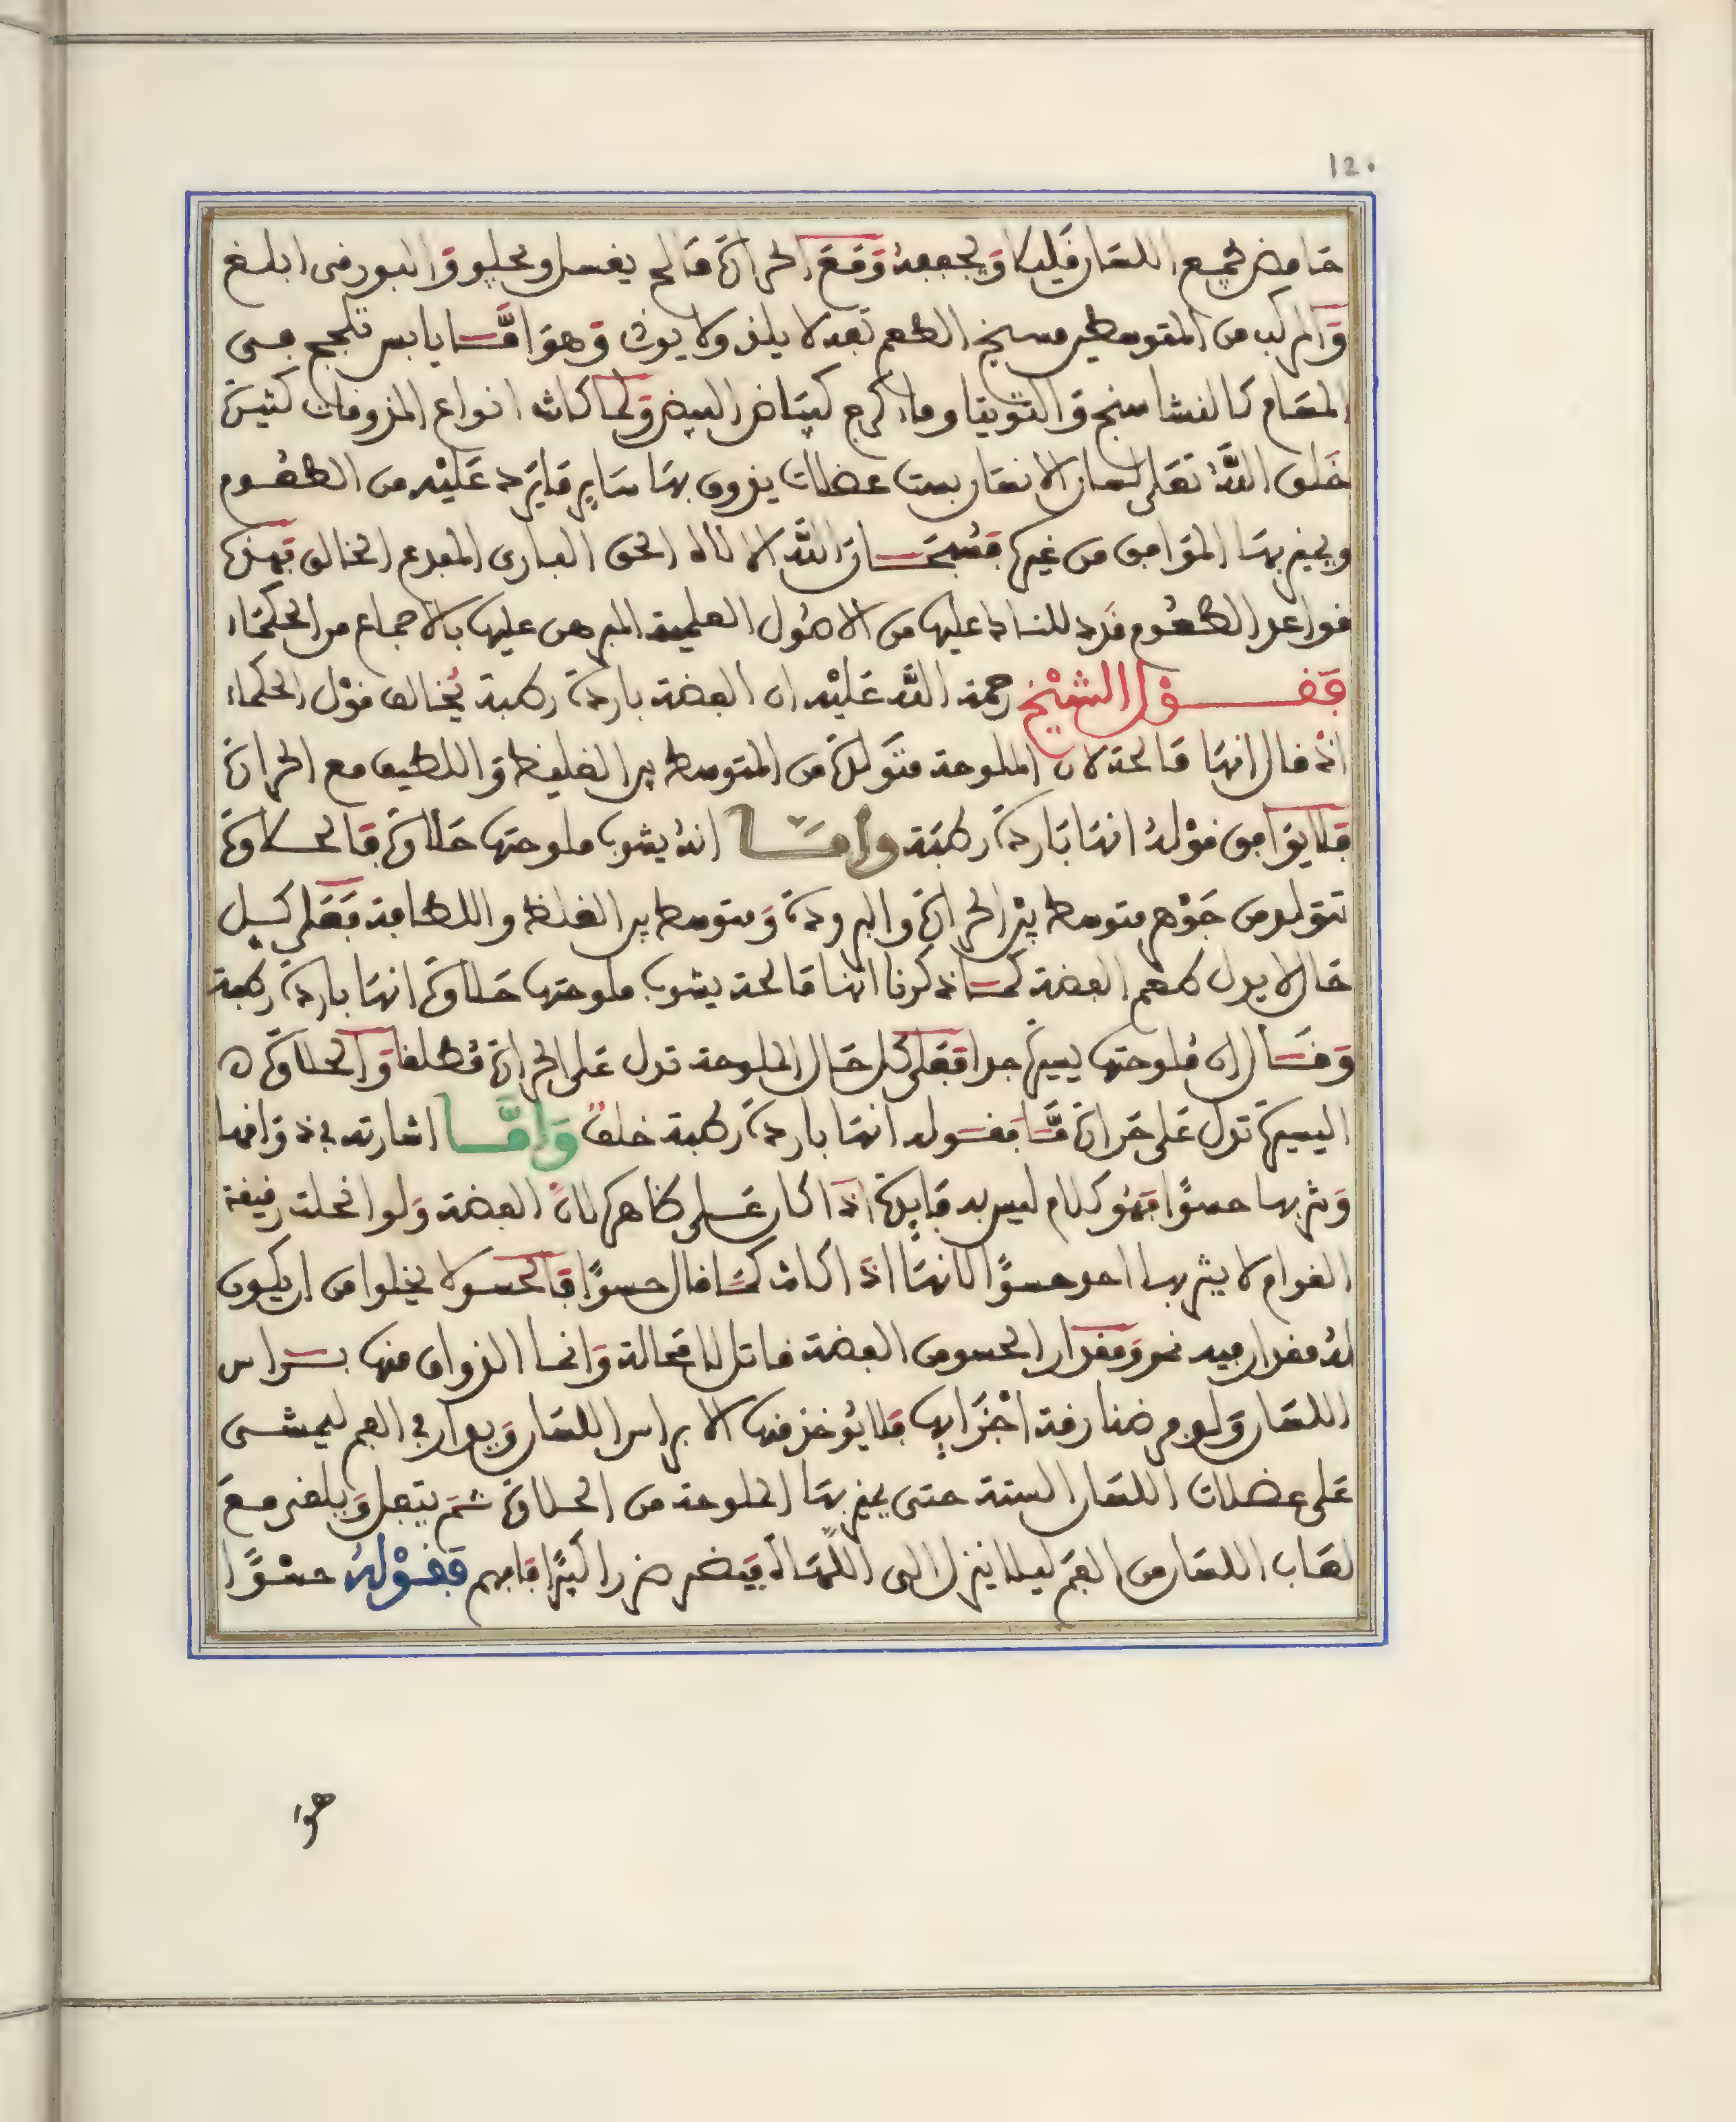 12.
حامض يجمع اللسان قليلا ويجففه ومع الحرارة مالح يغسل ويجلو والبورقى ابلغ
والمركب من المتوسطين مسيخ الطعم تفه لا يلذ ولا يوذى وهو اما يابس تلجج فى
المسام كالنشا سنج والتوتيا وما كرج كبياض البيض ولما كانت انواع المذوقات كثيرة
خلق الله تعلى لسان الانسان بست عضلات يذوق بها ساير ما يرد عليه من الطعوم
ويميز بها الموافق من غيره فسبحان الله الا لاه الحق البارى المبدع الخالق فهذه
قواعد الطعوم قرد للنا د عليها من الاصول العلمية المبرهن عليها بالاجماع من الحكماء
فقول الشيخ رحمة الله عليه ان الفضة باردة رطبة يخالف قول الحكماء
اذ قال انها مالحة لان الملوحة متولدة من المتوسط بين الغليظ واللطيف مع الحرارة
فلا يوافق قوله انها باردة رطبة واما انه يشوب ملوحتها حلاوة فالحلاوة
تتولد من جوهر متوسط بين الحرارة والبرودة ومتوسط بين الغلظ واللطافة فعلى كل
حال لا يدل طعم الفضة كما ذكرنا انها مالحة يشوب ملوحتها حلاوة انها باردة رطبة
وقال ان ملوحتها يسيرة جدا فعلى كل حال الملوحة تدل على الحرارة مطلقا والحلاوة ه
اليسيرة تدل على حرارة ما فقوله انها باردة رطبة خلف واما اشارته فى ذواقها
وشربها حسوا فهو كلام ليس به فايدة اذا كان على ظاهره لان الفضة ولو انحلت رقيقة
القوام لا يشربها احد حسوا لانها اذا كانت كما قال حسوا فالحسو لا يخلوا من ان يكون
له مقدار فيه نحو ومقدار الحسو من الفضة قاتل لا محالة وانما الذواق منها براس
اللسان ولو فرضنا رقة اجزايها فلا يوخذ منها الا براس اللسان ويدار فى الفم ليمشى
على عضلات اللسان الستة حتى يميز بها الملوحة من الحلاوة ثم يتفل ويلفض مع
لعاب اللسان من الفم ليلا ينزل الى اللهاة فيضر ضررا كبيرا فافهم فقوله حسوا
هوا